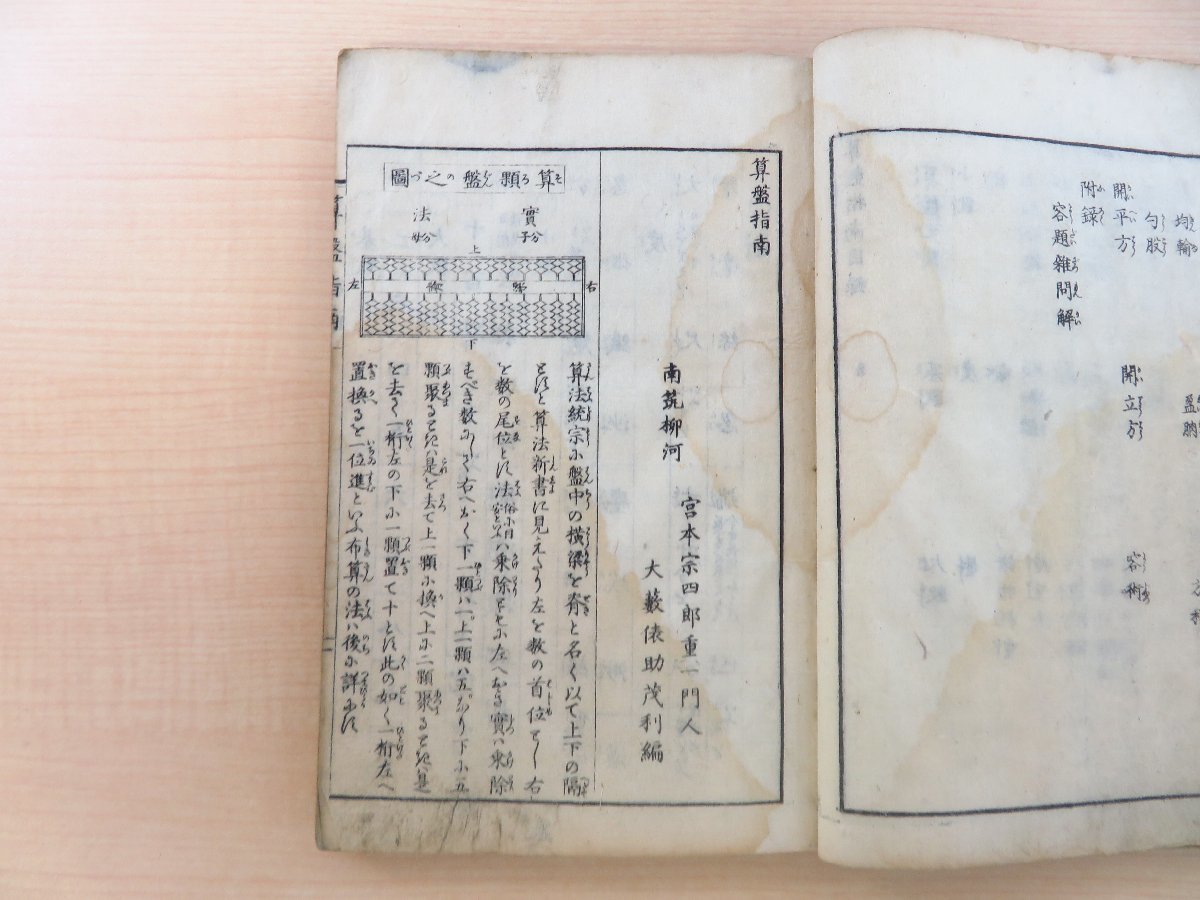 均輸
盈朒
勾股
開平方
開立方
容術
附録
容題雜問解
算盤指南
南筑柳河
宮本宗四郎重一門人
大藪俵助茂利編
算顆盤之圖
實 分子
法 分母
上
右
左
下
算法統宗に盤中の横梁を脊と名く以て上下の隔
とす算法新書に見えたり左を数の首位とし右
を数の尾位とす法俗小目安といふハ乗除ともに左へおき實ハ乗除
すべき数にして右へおく下一顆ハ一。上一顆ハ五。なり下に五
顆聚るときハ是を去て上一顆に換へ上に二顆聚るときハ是
を去て一桁左の下に一顆置て十とす此の如く一桁左へ
置換るを一位進といふ布算の法ハ後に詳にす
算盤指南